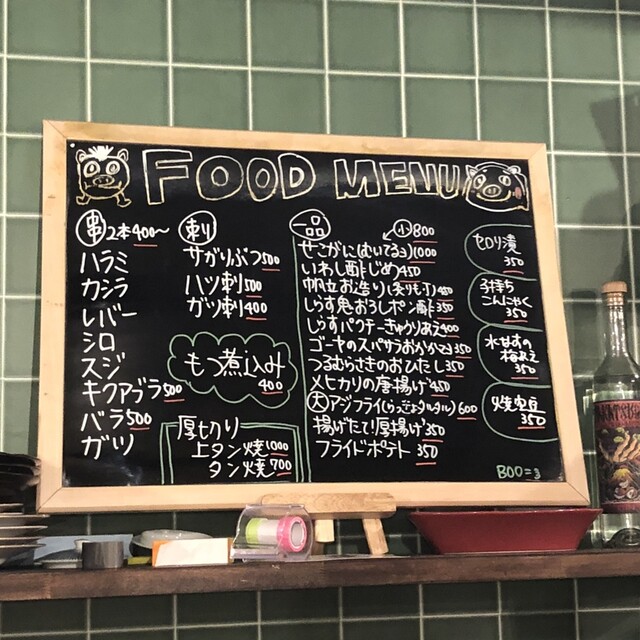 FOOD MENU
串 2本400〜
ハラミ
カシラ
レバー
シロ
スジ
キクアブラ500
バラ500
ガツ
刺り
サガりぶつ500
ハツ刺500
ガツ刺400
もつ煮込み
400
厚切り
上タン焼1000
タン焼700
一品
小800
せこがに(むいてるヨ)1000
いわし酢じめ450
帆立お造り(炙りも可)450
しらす鬼おろしポン酢350
しらすパクチーきゅうりあえ400
ゴーヤのスパサラおかかマヨ350
つるむらさきのおひたし350
メヒカリの唐揚げ450
大アジフライ(らっきょタルタル)600
揚げたて!厚揚げ350
フライドポテト 350
セロリ漬
350
子持ち
こんにゃく
350
水なすの
梅あえ
350
焼空豆
350
BOO=3